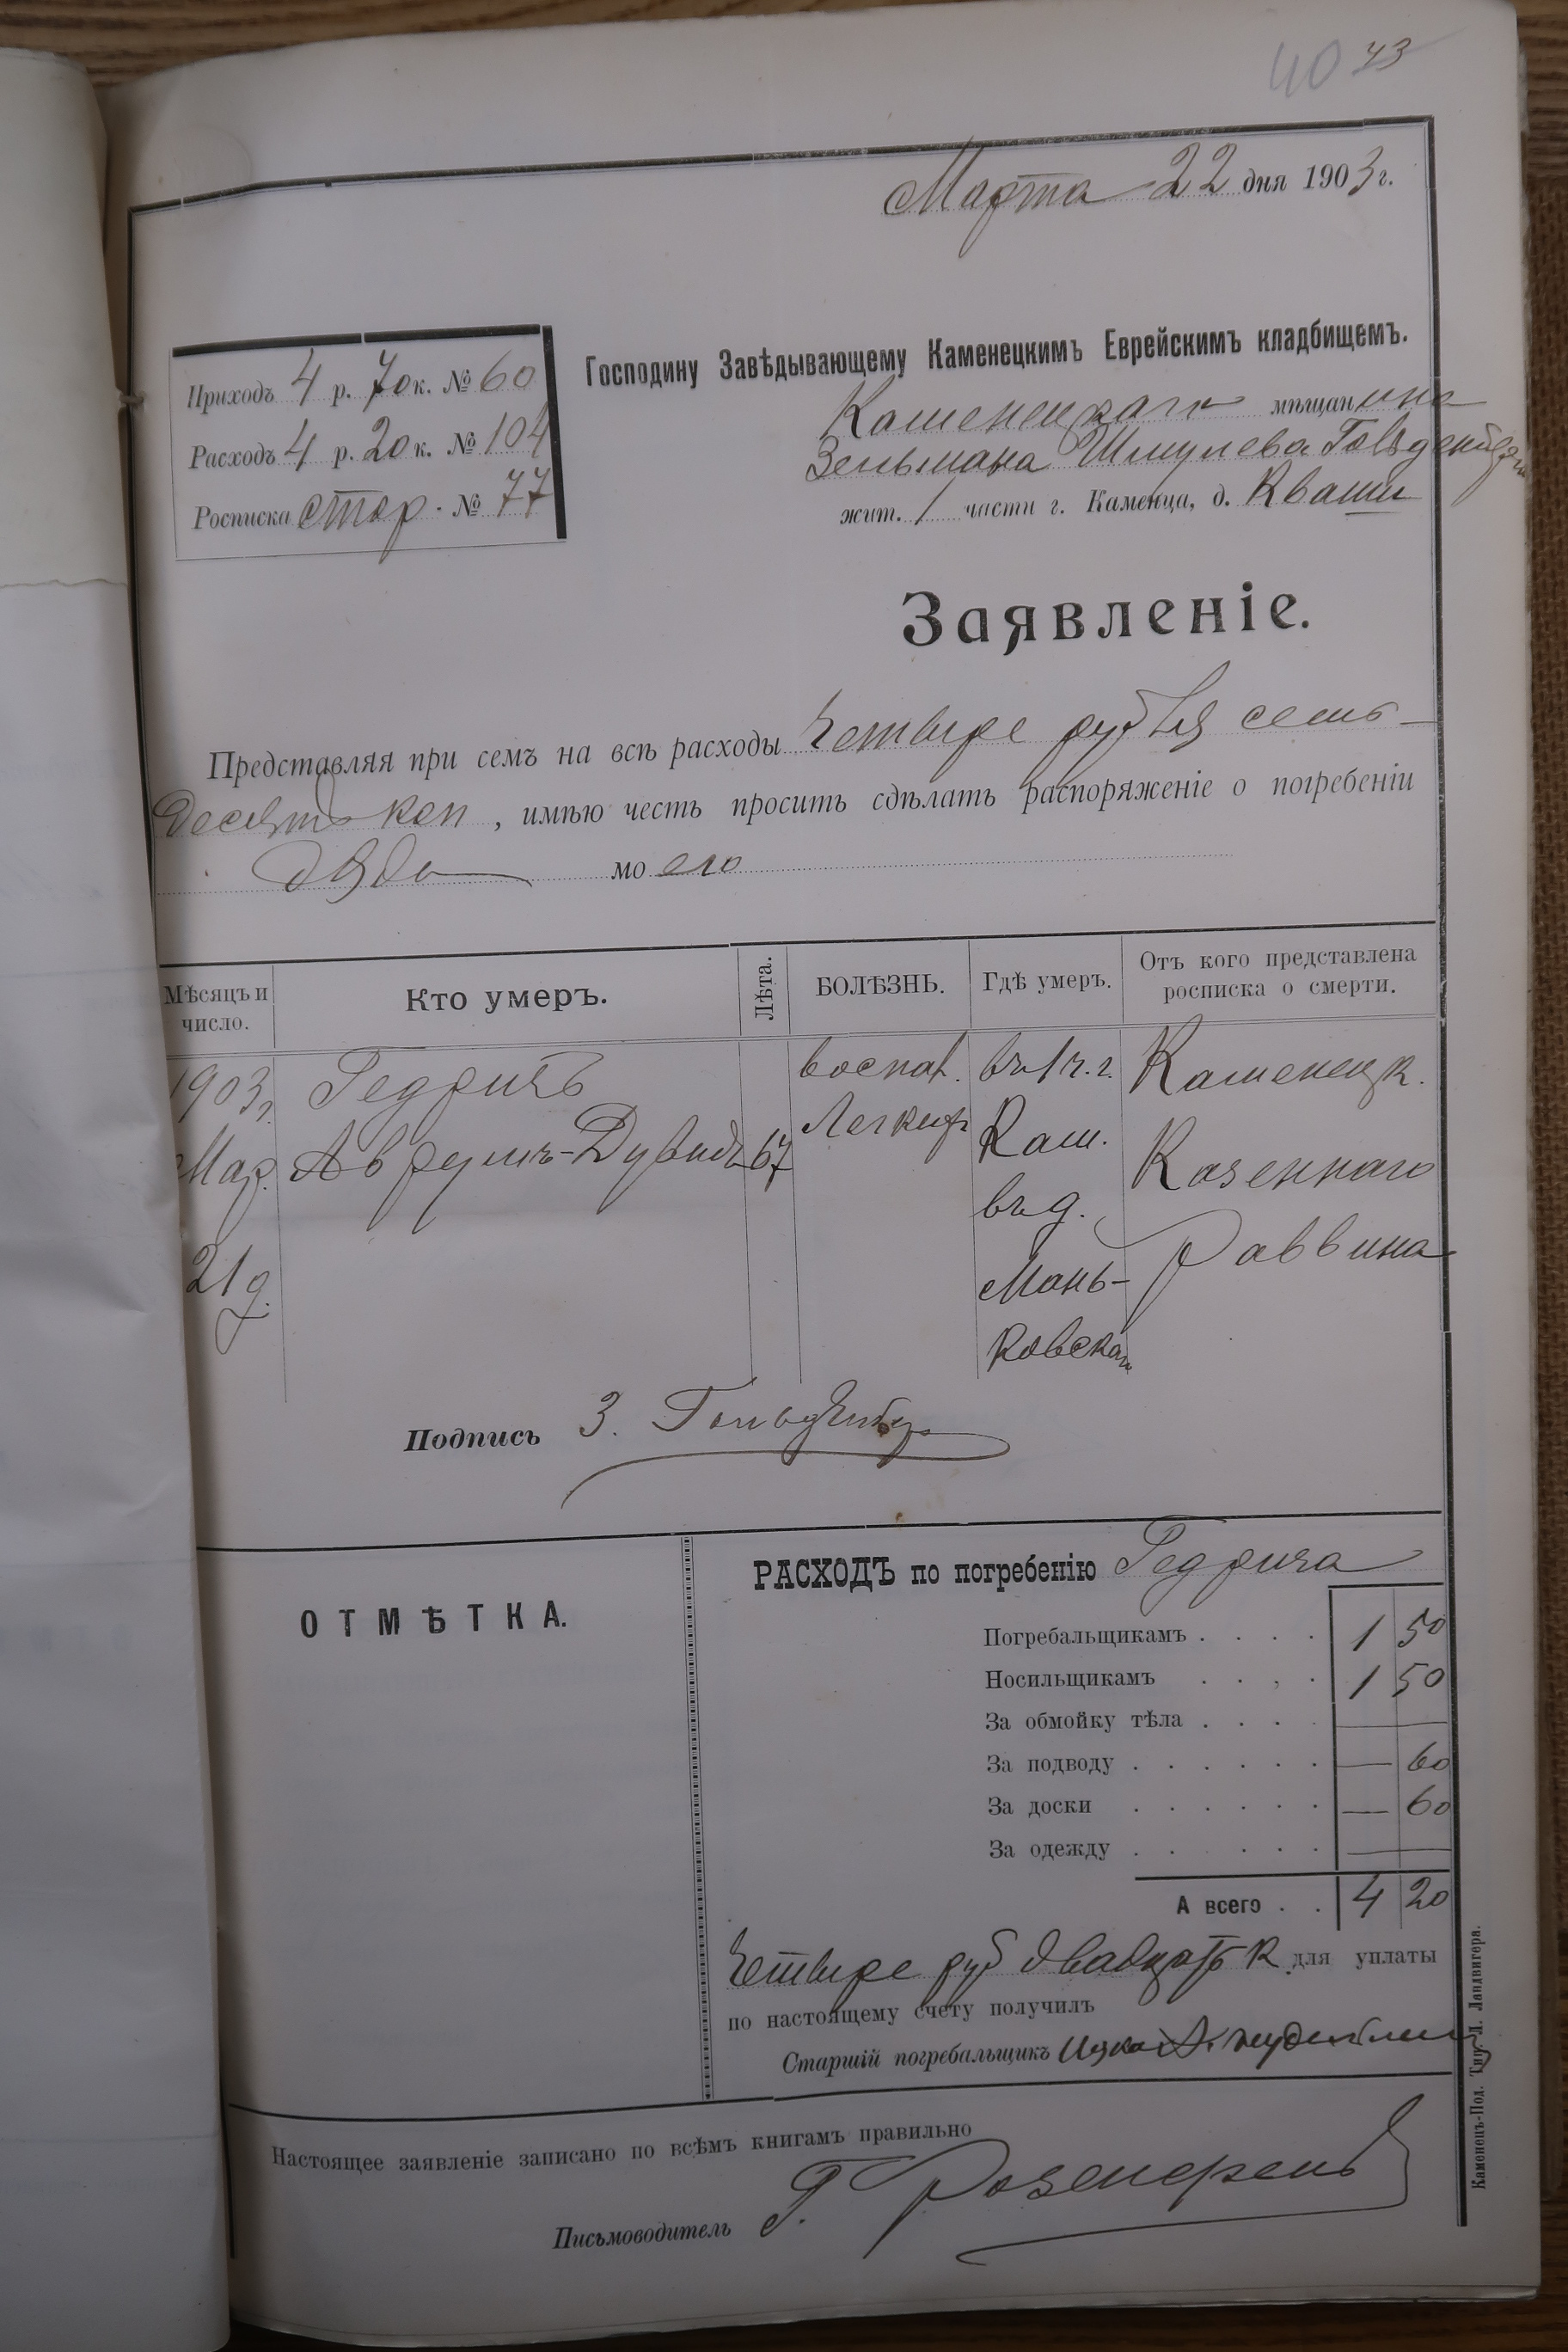 40 43
Марта 22 дня 1903 г.
Приходъ 4 р. 70 к. № 60
Расходъ 4 р. 20 к. № 104
Росписка стар. № 77
Господину Завѣдывающему Каменецкимъ Еврейскимъ кладбищемъ.
Каменецкаго мѣщанина
Зельмана Шмулева
жит. 1 части г. Каменца, д. Кваши
Заявленіе.
Представляя при семъ на всѣ расходы Четыре рубля семь-
десятъ коп, имѣю честь просить сдѣлать распоряженіе о погребеніи
дяди моего
Мѣсяцъ и число.
Кто умеръ.
Лѣта.
БОЛѢЗНЬ.
Гдѣ умеръ.
Отъ кого представлена росписка о смерти.
1903 г. Мар. 21 д.
Гедричъ Аврумъ-Дувидъ
67
воспал. Легкихъ
въ 1 ч. г. Кам. въ д. Маньковской
Каменецк. Казеннаго Раввина
Подпись З.
ОТМѢТКА.
РАСХОДЪ по погребенію Гедрича
Погребальщикамъ . . . . 1 50
Носильщикамъ . . . . 1 50
За обмойку тѣла . . . . —
За подводу . . . . . . — 60
За доски . . . . . . — 60
За одежду . . . . . . —
А всего . . 4 20
Четыре руб двадцать к для уплаты
по настоящему счету получилъ
Старшій погребальщикъ
Настоящее заявленіе записано по всѣмъ книгамъ правильно
Письмоводитель Г.
Каменецъ-Под. Тип. Л. Ландвигера.